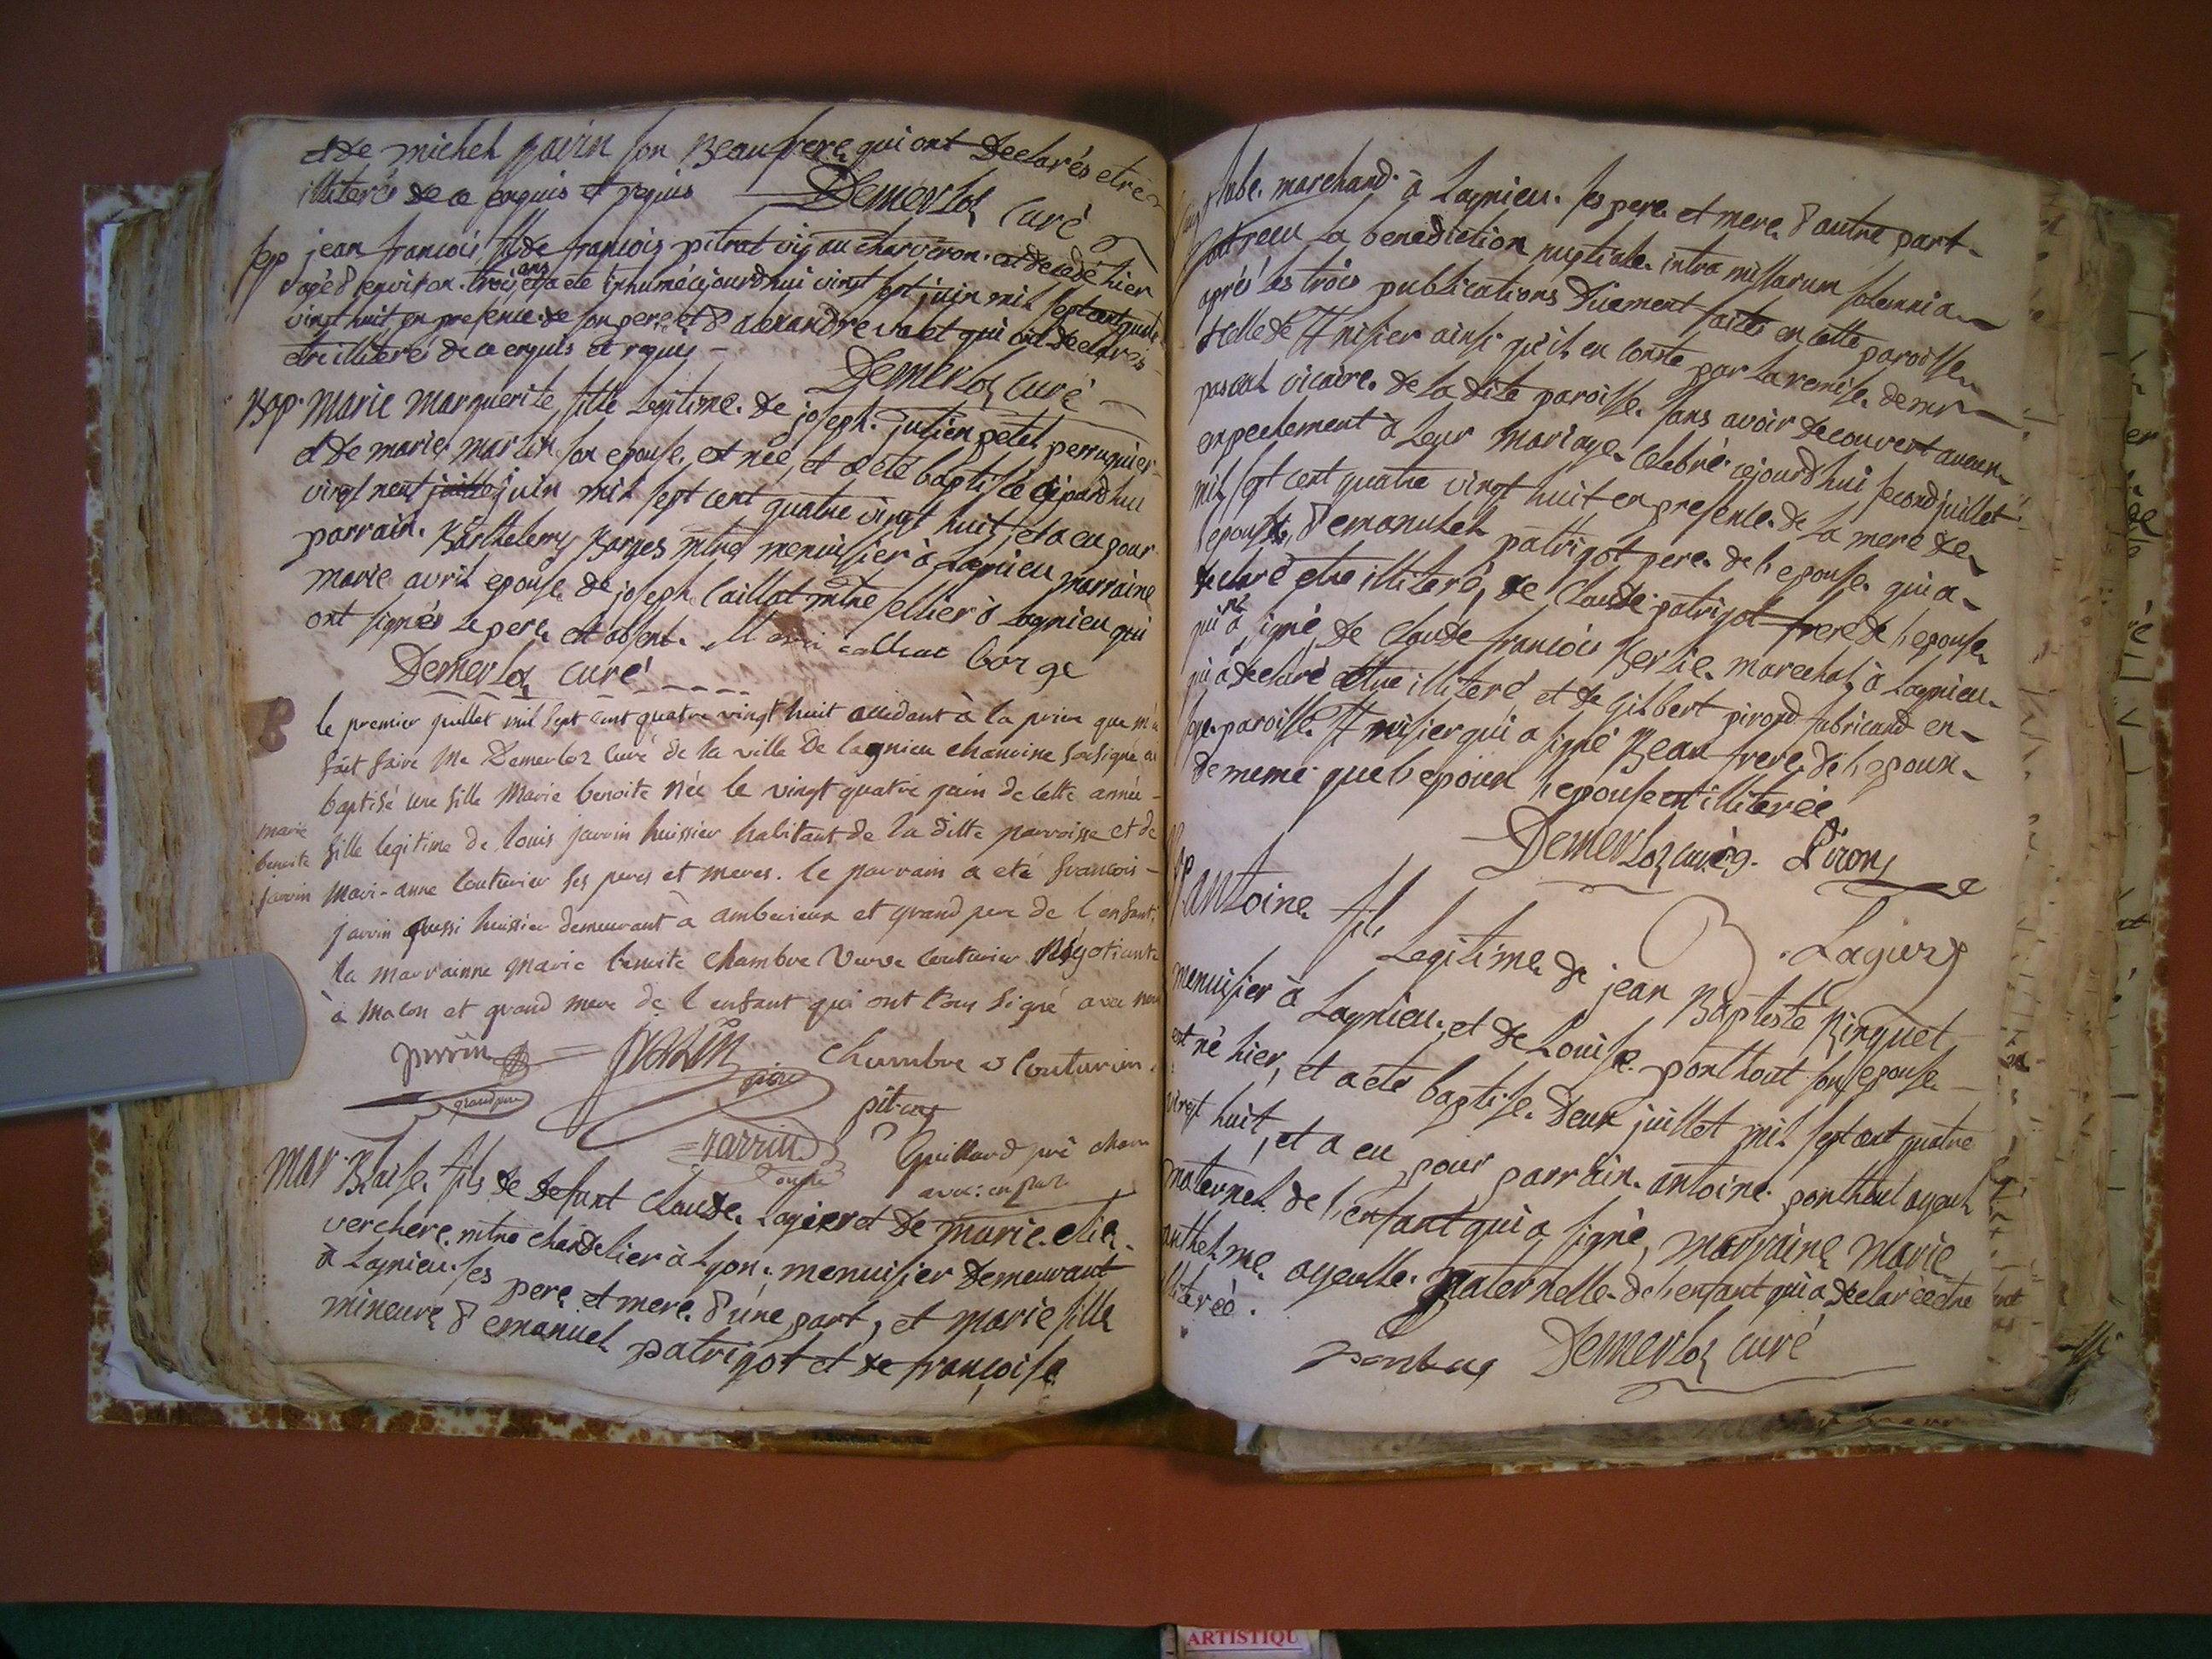 et de michel pavin son Beaufrere qui ont Declarés etre
illiterés de ce enquis et requis Demerloz curé
sep jean francois fils de francois pitrat vig au charveron est decedé hier
agé d'environ trois ans et a eté inhumé cejourdhui vingt sept juin mil sept cent quatre
vingt huit en presence de son pere et d'alexandre valet qui ont declarés
etre illiterés de ce enquis et requis
Demerloz curé
Bap. Marie Marguerite fille legitime de joseph julien petel perruquier
et de marie martin son epouse est née et a eté baptisée cejourdhui
vingt neuf juin mil sept cent quatre vingt huit, et a eu pour
parrain Barthelemy Barges mtre menuisier à Lagnieu marraine
marie avril epouse de joseph Caillat mtre sellier à Lagnieu qui
ont signés le pere est absent. Marie caillat barge
Demerloz curé
B le premier juillet mil sept cent quatre vingt huit accedant à la priere que m'a
fait faire Mr Demerloz curé de la ville De lagnieu chanoine soussigné ai
baptisé une fille Marie benoite née le vingt quatre juin de cette année
marie benoite jarrin
fille legitime de louis jarrin huissier habitant de la ditte parroisse et de
Mari-anne Couturier ses peres et meres. le parrain a eté francois
jarrin aussi huissier demeurant à amberieux et grand pere de l'enfant,
la marrainne Marie benoite Chambre Veuve Couturier Négotiante
à Macon et grand mere de l'enfant qui ont tous signé avec nous
jarrin grand pere jarrin pere Chambre v Couturier
jarrin
Guillard
mar. Blaise fils de defunt Claude Lagier et de marie elie
verchere mtre chandelier à Lyon, menuisier demeurant
à Lagnieu ses pere et mere d'une part, et marie fille
mineure d'emanuel patrigot et de françoise
marchand à Lagnieu ses pere et mere d'autre part
ont recu la benediction nuptiale intra missarum solemnia
aprés les trois publications duement faites en cette paroisse
et celle de St nisier ainsi qu'il en conste par la remise de mr
pascal vicaire de la dite paroisse sans avoir decouvert aucun
empechement à leur mariage celebré cejourdhui second juillet
mil sept cent quatre vingt huit en presence de la mere de
l'epoux, d'emanuel patrigot pere de l'epouse qui a
declaré etre illiteré, de Claude patrigot frere de l'epouse
qui a signé, de Claude francois Berlie marechal à Lagnieu
qui a declaré etre illiteré, et de Gilbert pirond fabricand en
paroisse St nisier qui a signé Beau frere de l'epoux
de meme que l'epoux l'epouse est illiterée
Demerloz curé Piron
Lagier
antoine fils legitime de jean Baptiste Ringuet
menuisier à Lagnieu, et de Louise ponthout son epouse
est né hier, et a eté baptisé deux juillet mil sept cent quatre
vingt huit, et a eu pour parrain antoine ponthout ayeul
maternel de l'enfant qui a signé, marraine marie
anthelme ayeulle paternelle de l'enfant qui a declarée etre
illiterée.
Demerloz curé
ARTISTIQU